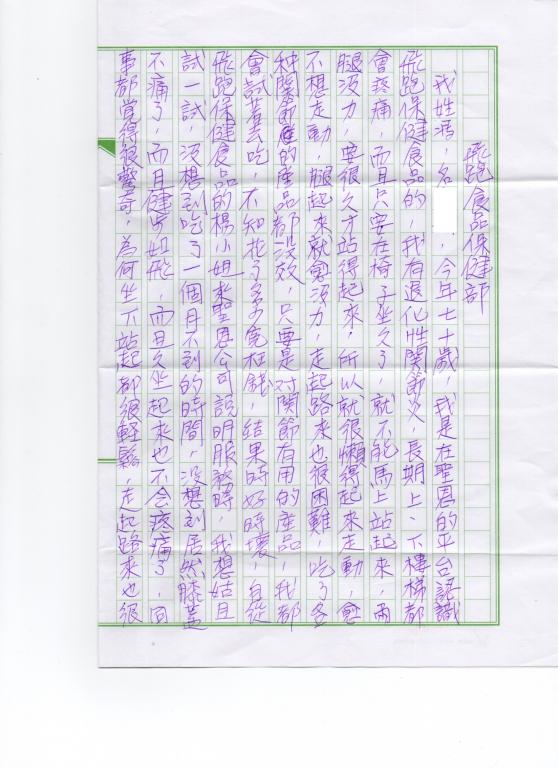 飛跑食品保健部
我姓洪，名　　，今年七十歲，我是在聖恩的平台認識
飛跑保健食品的，我有退化性關節炎，長期上、下樓梯都
會疼痛，而且只要在椅子坐久了，就不能馬上站起來，兩
腿沒力，要很久才站得起來，所以就很懶得起來走動，愈
不想走動，腿起來就愈沒力，走起路來也很困難　吃了各
种關節的産品都没效，只要是对関節有用的産品，我都
會試著去吃，不知花了多少冤枉錢，結果時好時壞，自從
飛跑保健食品的楊小姐來聖恩公司說明服務時，我想姑且
試一試，沒想到吃了一個月不到的時間，沒想到居然膝蓋
不痛了，而且健步如飛，而且久坐起來也不会疼痛了，同
事都覺得很驚奇，為何坐下站起都很輕鬆，走起路來也很